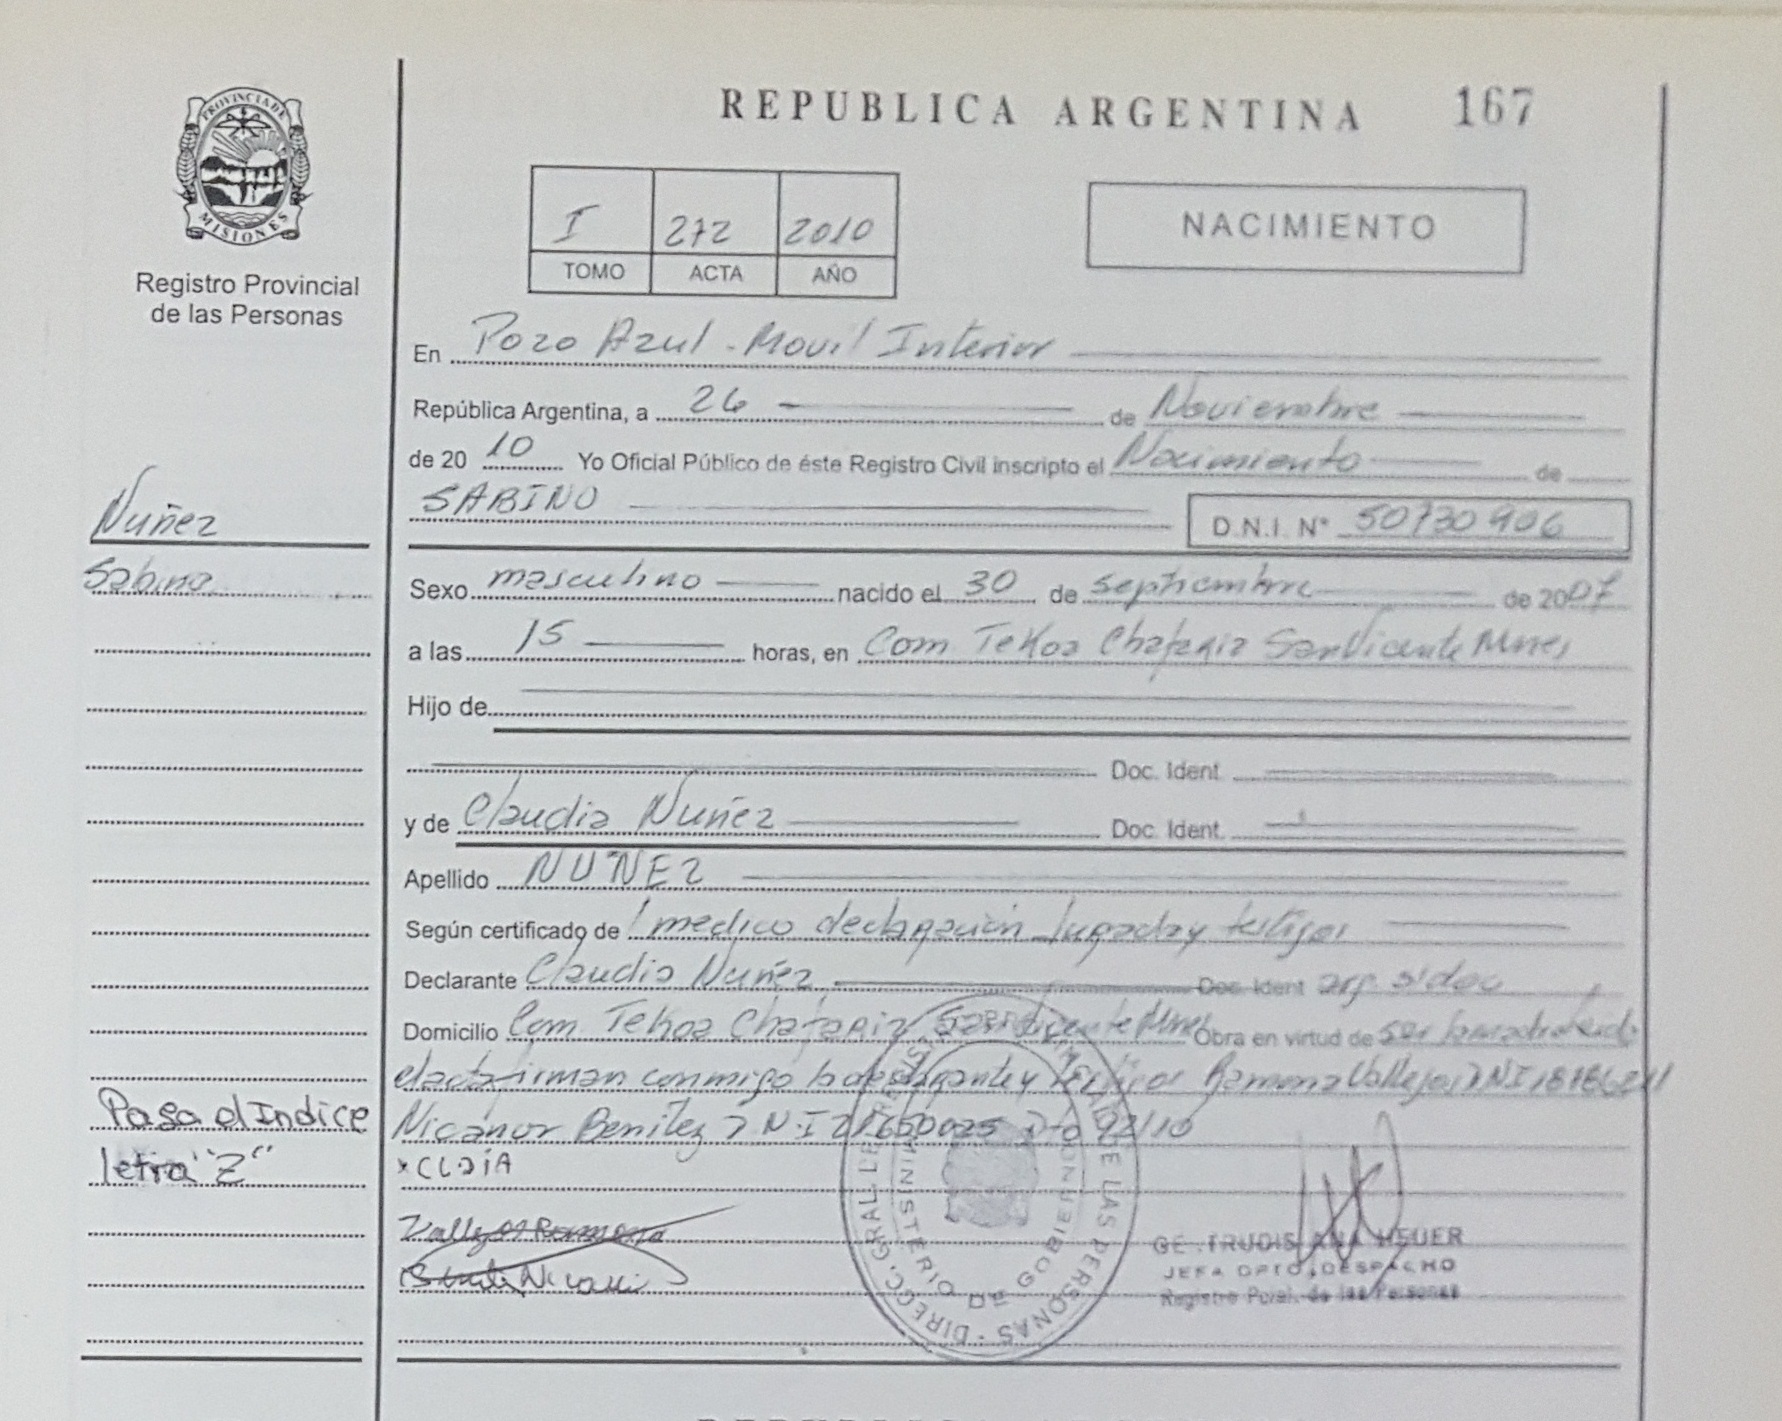 PROVINCIA DE
MISIONES
Registro Provincial
de las Personas
REPUBLICA ARGENTINA 167
I 272 2010
TOMO ACTA AÑO
NACIMIENTO
En Pozo Azul - Movil Interior
República Argentina, a 26 de Noviembre
de 20 10 Yo Oficial Público de éste Registro Civil inscripto el Nacimiento de
SABINO D.N.I. N° 50730906
Nuñez
Sabino
Sexo masculino nacido el 30 de septiembre de 2007
a las 15 horas, en Com Tekoa Chafariz San Vicente Mnes
Hijo de
Doc. Ident.
y de Claudia Nuñez Doc. Ident.
Apellido NUÑEZ
Según certificado de 1 medico declaración y testigos
Declarante Claudia Nuñez Doc. Ident arg s/doc
Domicilio Com Tekoa Chafariz San Vicente Mnes Obra en virtud de ser
el acta firman conmigo la declarante y testigos Ramona Vallejos DNI
Nicanor Benitez DNI 92/10
Pasa al Indice
letra "Z"
x CLDIA
Vallejos Ramona
GERTRUDIS ANA HEUER
JEFA DPTO. DESPACHO
Registro Pcial. de las Personas
DIRECC. GRAL. DE LAS PERSONAS
MINISTERIO DE GOBIERNO